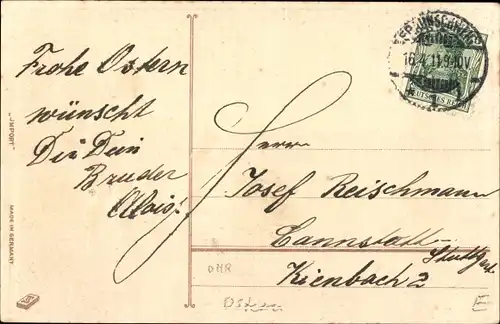 Frohe Ostern
wünscht
Dir Dein
Bruder
Alois.
"IMPORT"
MADE IN GERMANY
16.4.11.9-10V
DEUTSCHES REICH
Herrn
Josef Reischmann
Cannstatt-
Stuttgart
Kienbach 2
DHR
Ostern
E